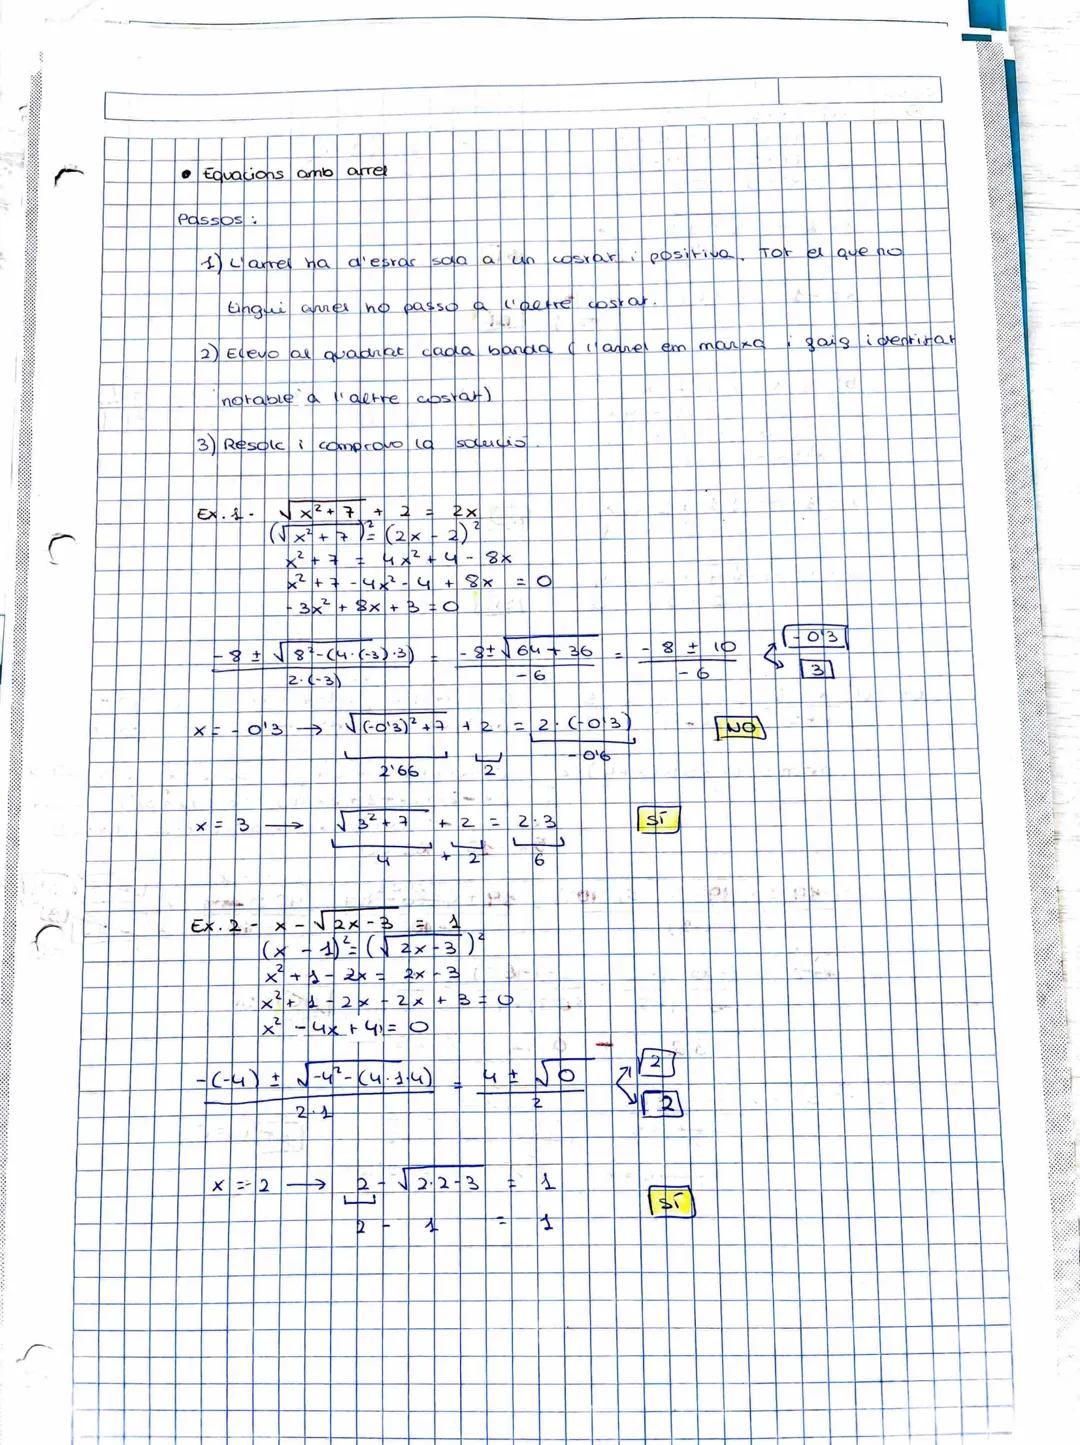 • Equacions amb arrel
Passos:
1) L'arrel ha d'estar sola a un costat i positiva. Tot el que no
tingui arrel ho passo a l'altre costat.
2) Elevo al quadrat cada banda (l'arrel em marxa i faig identitat
notable a l'altre costat)
3) Resolc i comprovo la solució.
Ex. 1 - √(x² + 7) + 2 = 2x
(√(x² + 7))² = (2x - 2)²
x² + 7 = 4x² + 4 - 8x
x² + 7 - 4x² - 4 + 8x = 0
-3x² + 8x + 3 = 0
(-8 ± √(8² - (4·(-3)·3))) / (2·(-3)) = (-8 ± √(64 + 36)) / -6 = (-8 ± 10) / -6 -0'3
3
x = -0'3 → √((-0'3)² + 7) + 2 = 2·(-0'3) NO
2'66 2 -0'6
x = 3 → √(3² + 7) + 2 = 2·3 SÍ
4 + 2 6
Ex. 2 - x - √(2x - 3) = 1
(x - 1)² = (√(2x - 3))²
x² + 1 - 2x = 2x - 3
x² + 1 - 2x - 2x + 3 = 0
x² - 4x + 4 = 0
(-(-4) ± √(-4² - (4·1·4))) / (2·1) = (4 ± √0) / 2 2
2
x = 2 → 2 - √(2·2 - 3) = 1
2 - 1 = 1 SÍ